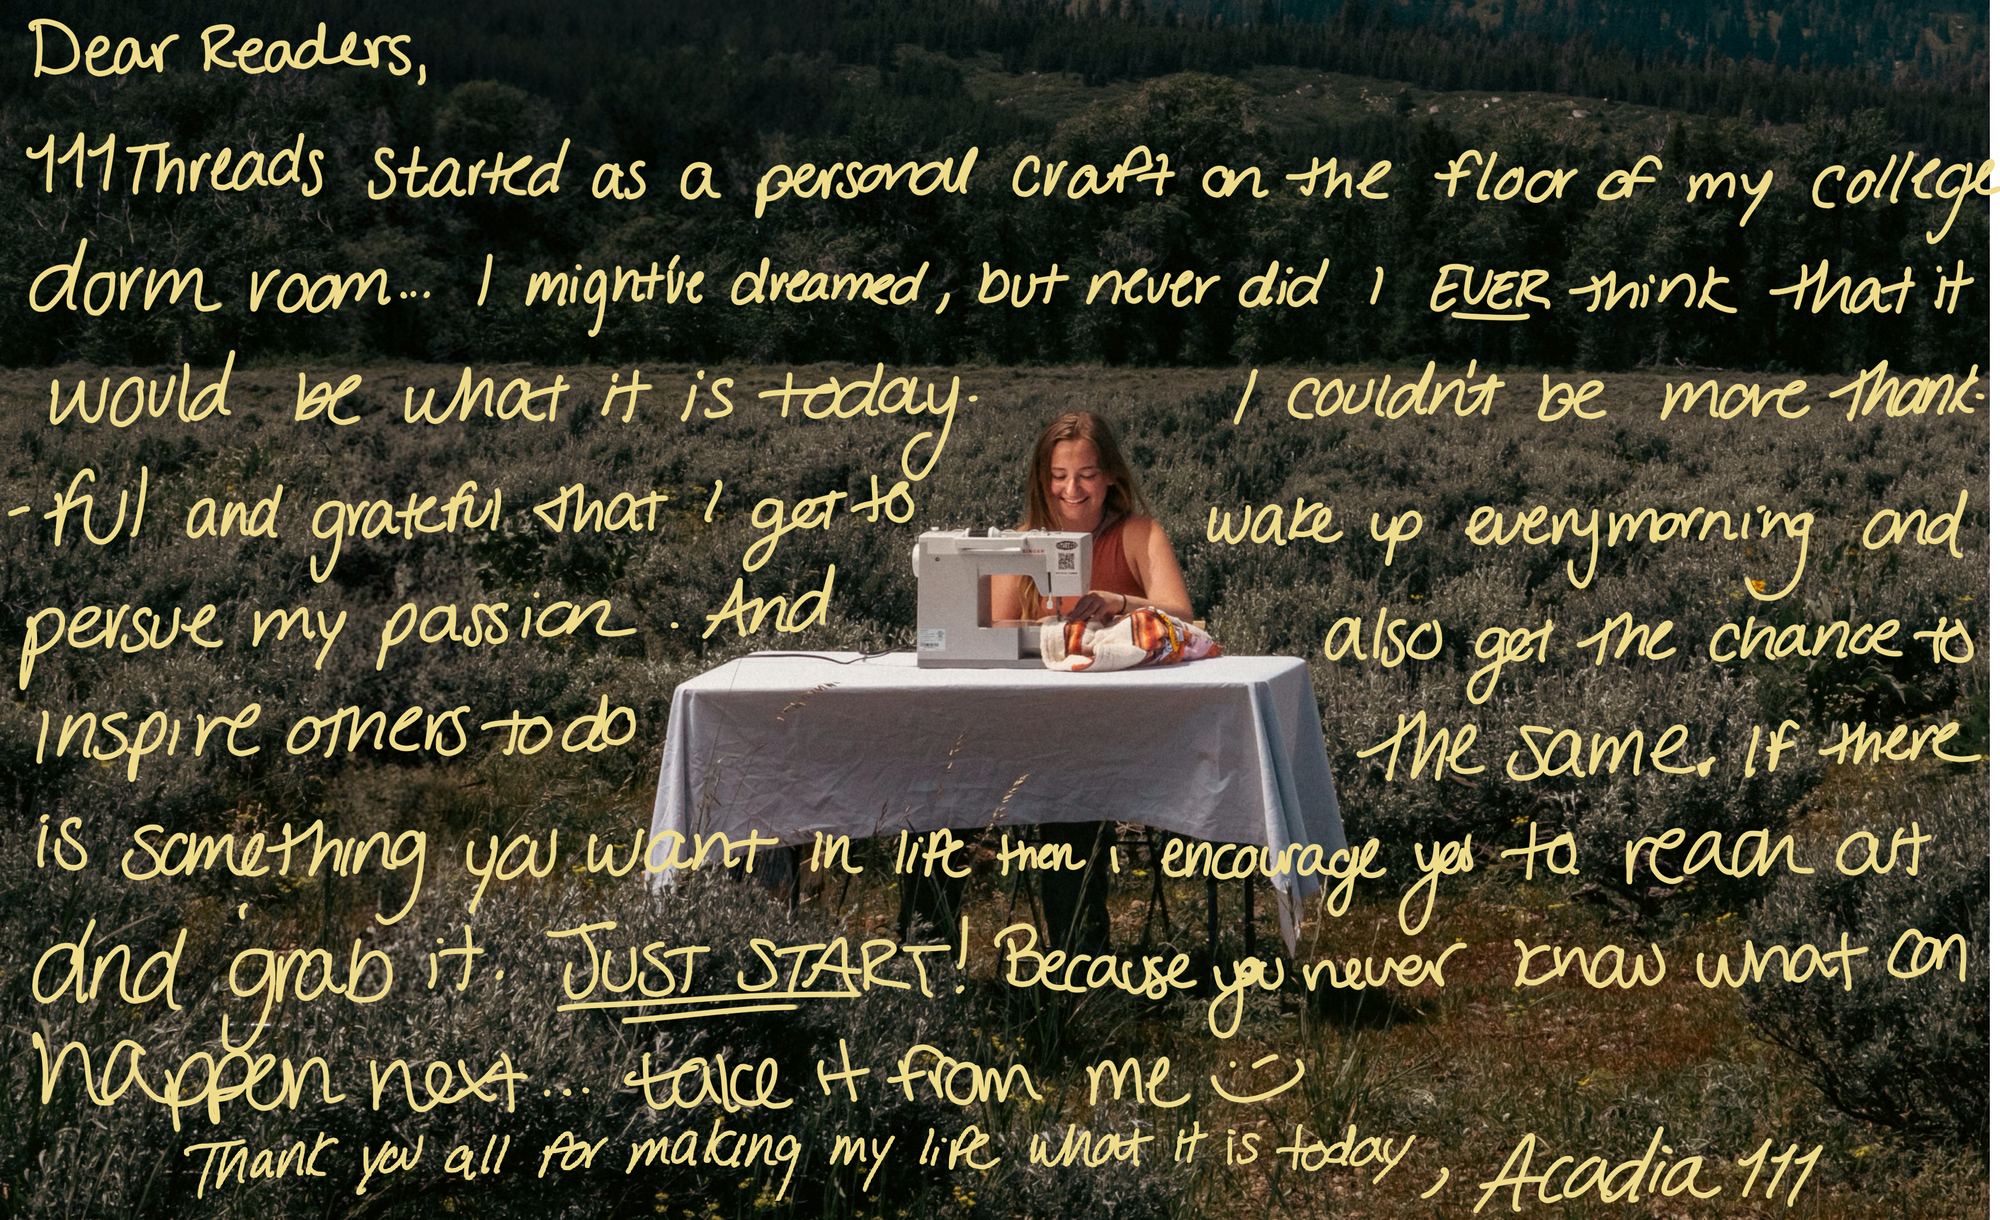 Dear Readers,
111Threads started as a personal craft on the floor of my college
dorm room... I might've dreamed, but never did I EVER think that it
would be what it is today. I couldn't be more thank-
-ful and grateful that I get to wake up everymorning and
persue my passion. And also get the chance to
inspire others to do the same. If there
is something you want in life then i encourage you to reach out
and grab it. JUST START! Because you never know what can
happen next... take it from me :)
Thank you all for making my life what it is today, Acadia 111
SINGER